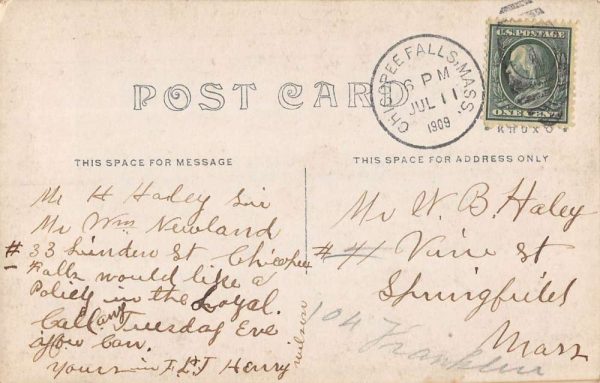 POST CARD
CHICOPEE FALLS, MASS.
6 PM
JUL 11
1909
U.S. POSTAGE
ONE CENT
THIS SPACE FOR MESSAGE
THIS SPACE FOR ADDRESS ONLY
Mr H Haley Sir
Mr Wm Newland
# 33 Linden St Chicopee
Falls would like a
Policy in the Loyal.
Call any Tuesday Eve
if you can.
Yours in F L & T Henry
Wilson
Mr W. B. Haley
# 41 Vine St
Springfield
Mass
104 Franklin